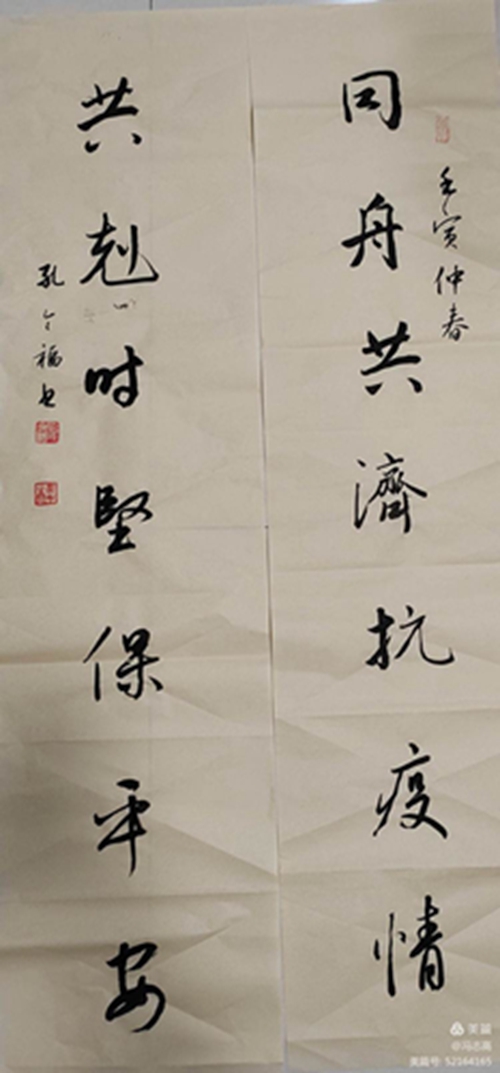 同舟共濟抗疫情
壬寅仲春
共剋时堅保平安
孔令福书
美篇
@冯志高
美篇号: 52164165